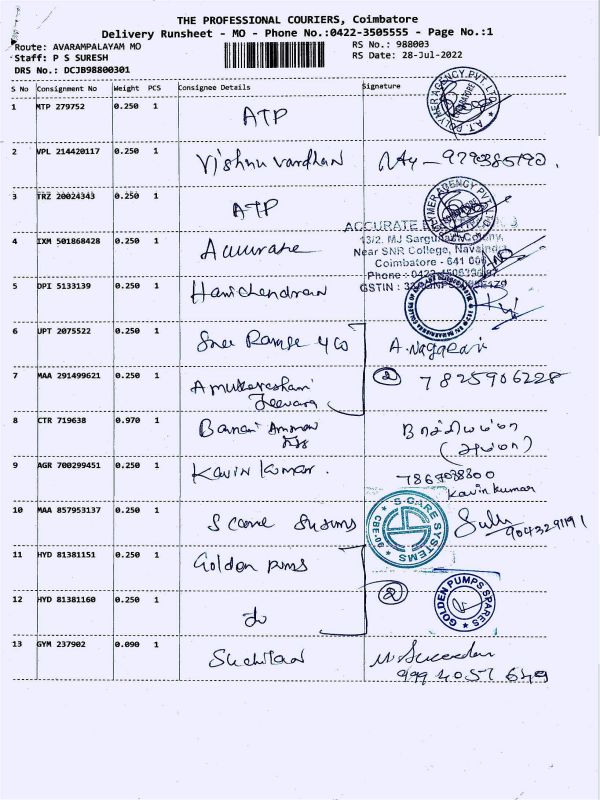 THE PROFESSIONAL COURIERS, Coimbatore
Delivery Runsheet - MO - Phone No.:0422-3505555 - Page No.:1
Route: AVARAMPALAYAM MO RS No.: 988003
Staff: P S SURESH RS Date: 28-Jul-2022
DRS No.: DCJB98800301
S No Consignment No Weight PCS Consignee Details Signature
1 MTP 279752 0.250 1 ATP
A.T. POLYMER AGENCY PVT. LTD.
2 VPL 214420117 0.250 1 Vishnu vardhan
3 TRZ 20024343 0.250 1 ATP
4 IXM 501868428 0.250 1 Accurate
ACCURATE
13/2. MJ
Near SNR College, Navaindia
Coimbatore - 641 006
Phone : 0422
GSTIN : 33
5 DPI 5133139 0.250 1 Harichendran
6 UPT 2075522 0.250 1 Sree & Co A. Nagaraj
7 MAA 291499621 0.250 1 2 7825906228
8 CTR 719638 0.970 1 Banari Amman
(அம்மா)
9 AGR 700299451 0.250 1 Kavin Kumar.
Kavin Kumar
10 MAA 857953137 0.250 1 S care Systems 9043291191
S.CARE SYSTEMS
11 HYD 81381151 0.250 1 Golden Pumps
2
GOLDEN PUMPS SPARES
12 HYD 81381160 0.250 1 do
13 GYM 237902 0.090 1
999 4057 649